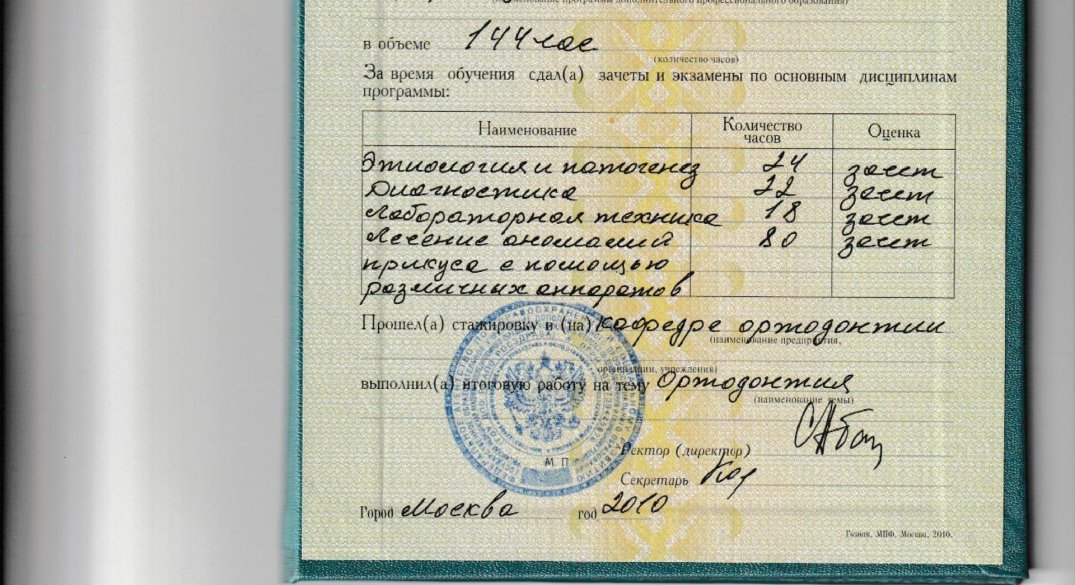 (наименование программы дополнительного профессионального образования)
в объеме 144 час
(количество часов)
За время обучения сдал(а) зачеты и экзамены по основным дисциплинам
программы:
Наименование Количество часов Оценка
Этиология и патогенез 24 зачет
Диагностика 22 зачет
Лабораторная техника 18 зачет
Лечение аномалий 80 зачет
прикуса с помощью
различных аппаратов
Прошел(а) стажировку в (на) Кафедре ортодонтии
(наименование предприятия,
организации, учреждения)
выполнил(а) итоговую работу на тему Ортодонтия
(наименование темы)
М П
Ректор (директор)
Секретарь
Город Москва год 2010
Гознак, МПФ, Москва, 2010.